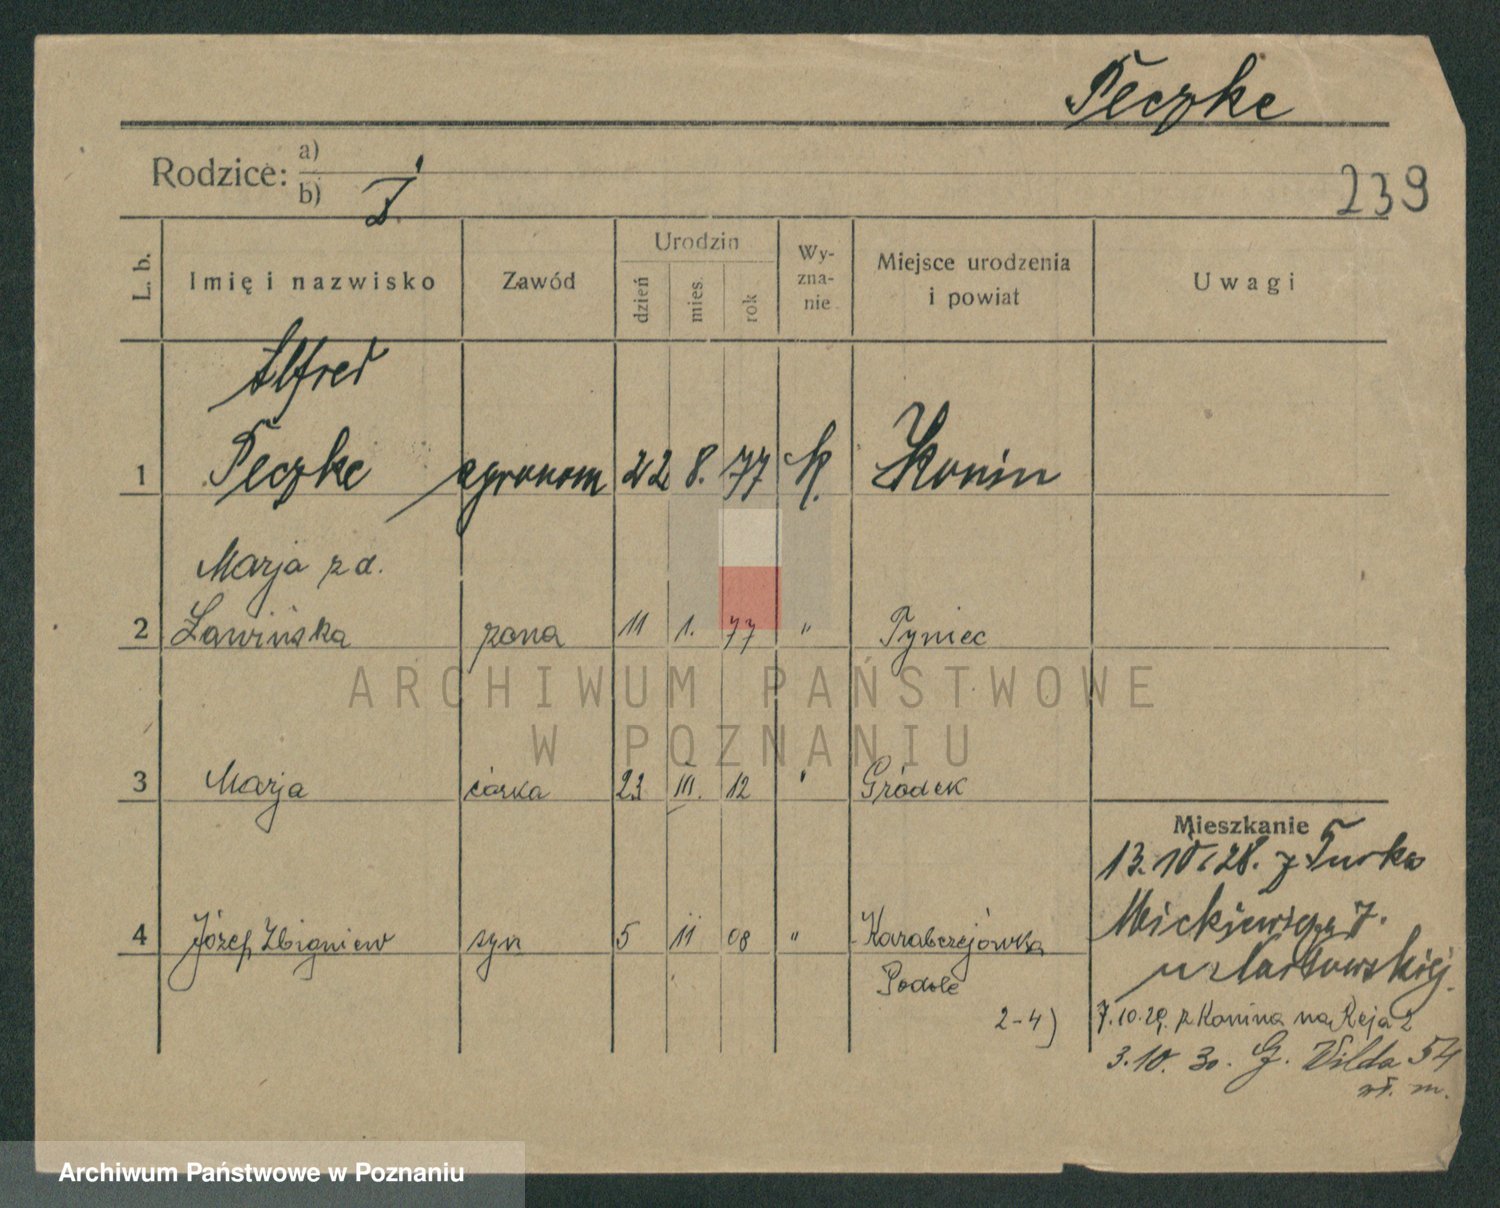 Peczke
Rodzice: a)
b) Ż.
239
L. b.
Imię i nazwisko
Zawód
Urodzin
dzień
mies.
rok
Wy-
zna-
nie
Miejsce urodzenia
i powiat
Uwagi
Alfred
1 Peczke agronom 22 8. 77 k. Konin
Marja z d.
2 Zawińska żona 11 1. 77 " Tyniec
ARCHIWUM PAŃSTWOWE
W POZNANIU
3 Marja córka 23 III. 12 " Gródek
Mieszkanie
13.10.28. z Turka
Mickiewicza 7.
4 Józef Zbigniew syn 5 11 08 " Karabczejówka
u
Podole
2-4) 7.10.29. z Konina na Reja 2
3.10. 30. G. Wilda 54
wł. m.
Archiwum Państwowe w Poznaniu